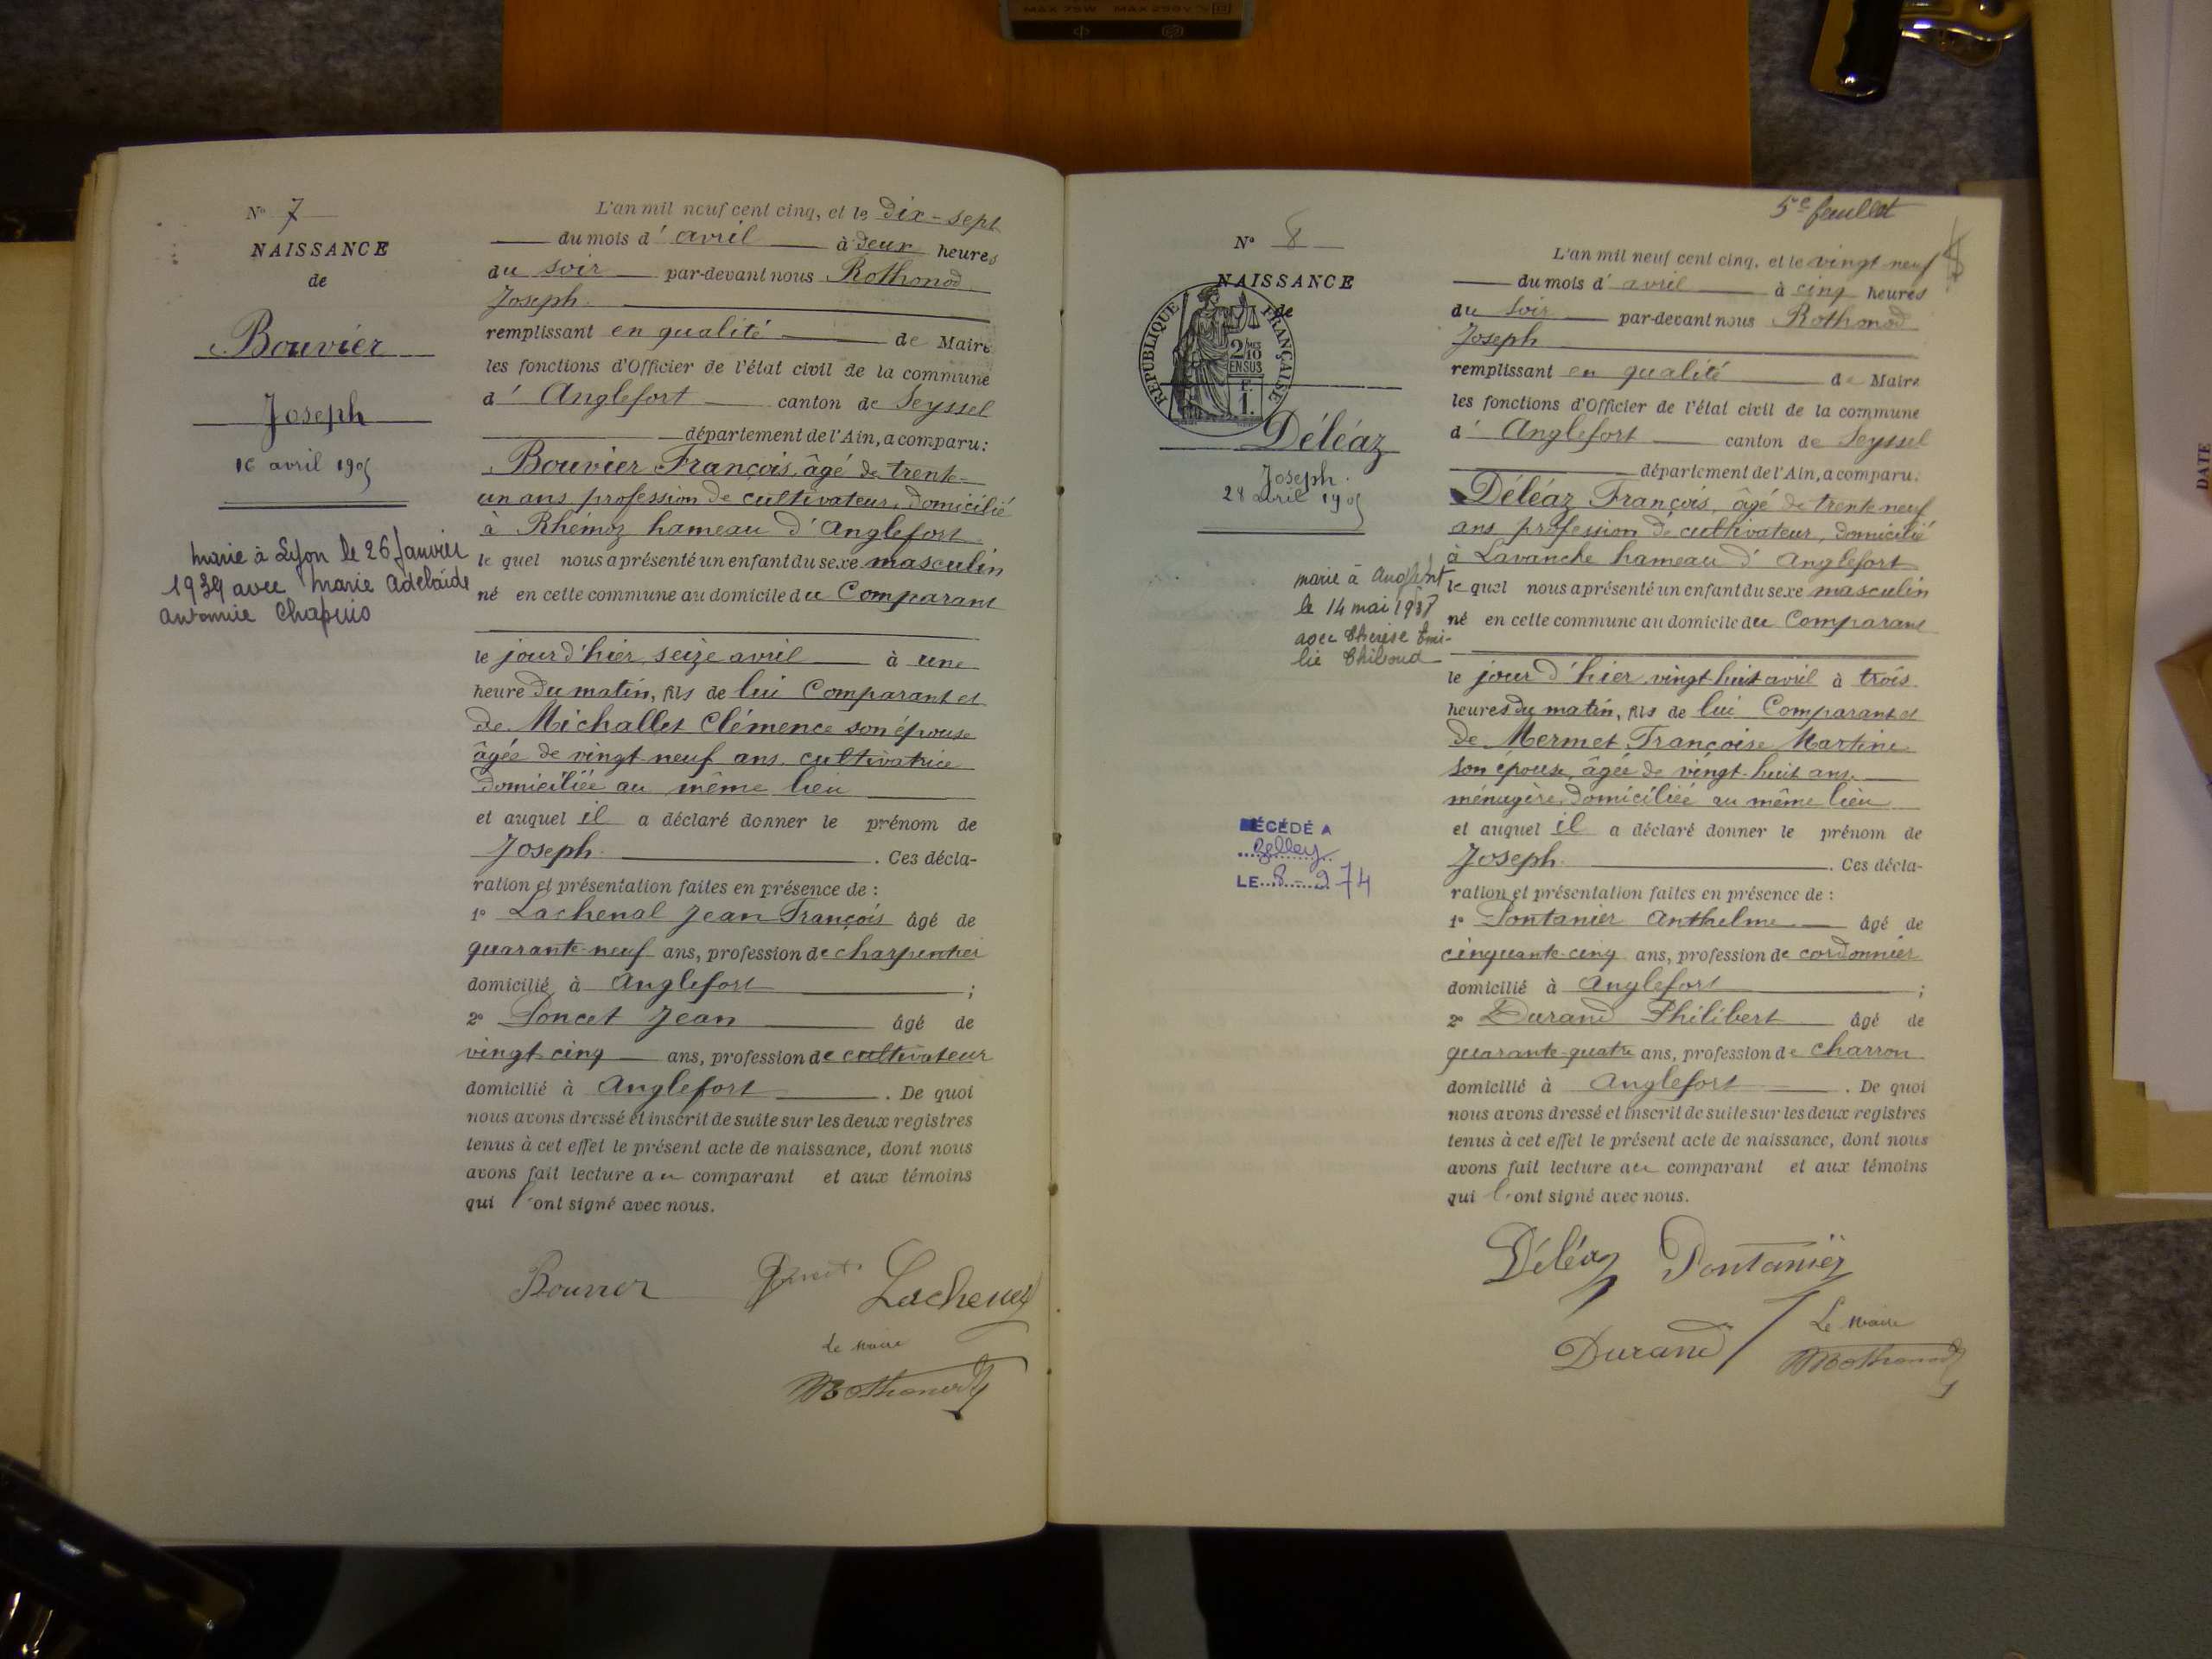 MAX 75W MAX 250V
N° 7
NAISSANCE
de
Bouvier
Joseph
16 avril 1905
marié à Lyon le 26 Janvier
1939 avec Marie Adelaide
Antonnie Chapuis
L'an mil neuf cent cinq, et le dix-sept
du mois d'avril à deux heures
du soir par-devant nous Rothonod
Joseph
remplissant en qualité de Maire
les fonctions d'Officier de l'état civil de la commune
d'Anglefort canton de Seyssel
département de l'Ain, a comparu:
Bouvier François, âgé de trente-
un ans, profession de cultivateur, domicilié
à Rhémoz hameau d'Anglefort
le quel nous a présenté un enfant du sexe masculin
né en cette commune au domicile du Comparant
le jour d'hier, seize avril à une
heure du matin, fils de lui Comparant et
de Michallet Clémence son épouse
âgée de vingt-neuf ans, cultivatrice
domiciliée au même lieu
et auquel il a déclaré donner le prénom de
Joseph. Ces décla-
ration et présentation faites en présence de :
1° Lachenal Jean François âgé de
quarante-neuf ans, profession de charpentier
domicilié à Anglefort ;
2° Poncet Jean âgé de
vingt-cinq ans, profession de cultivateur
domicilié à Anglefort. De quoi
nous avons dressé et inscrit de suite sur les deux registres
tenus à cet effet le présent acte de naissance, dont nous
avons fait lecture au comparant et aux témoins
qui l'ont signé avec nous.
Bouvier Poncet Lachenal
Le Maire
Rothonod
5e feuillet
N° 8
NAISSANCE
de
REPUBLIQUE FRANÇAISE
2/10
EN SUS
F.
1.
Déléaz
Joseph.
28 avril 1905
marié à
le 14 mai
avec Thérèse Emi-
lie
DÉCÉDÉ A
Belley
LE 8-9 74
L'an mil neuf cent cinq, et le vingt-neuf
du mois d'avril à cinq heures
du soir par-devant nous Rothonod
Joseph
remplissant en qualité de Maire
les fonctions d'Officier de l'état civil de la commune
d'Anglefort canton de Seyssel
département de l'Ain, a comparu.
Déléaz François, âgé de trente neuf
ans, profession de cultivateur, domicilié
à Lavanche hameau d'Anglefort
le quel nous a présenté un enfant du sexe masculin
né en cette commune au domicile du Comparant
le jour d'hier, vingt-huit avril à trois
heures du matin, fils de lui Comparant et
de Mermet Françoise Martine
son épouse, âgée de vingt-huit ans
ménagère, domiciliée au même lieu
et auquel il a déclaré donner le prénom de
Joseph. Ces décla-
ration et présentation faites en présence de :
1° Pontanier Anthelme âgé de
cinquante-cinq ans, profession de cordonnier
domicilié à Anglefort ;
2° Durand Philibert âgé de
quarante-quatre ans, profession de charron
domicilié à Anglefort. De quoi
nous avons dressé et inscrit de suite sur les deux registres
tenus à cet effet le présent acte de naissance, dont nous
avons fait lecture au comparant et aux témoins
qui l'ont signé avec nous.
Déléaz Pontanier
Durand
Le Maire
Rothonod
DATE